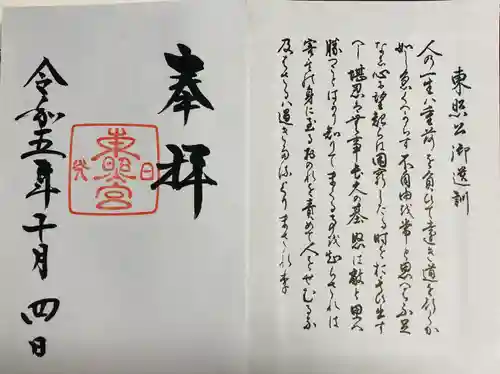 東照公御遺訓
人の一生ハ重荷を負ひて遠き道を行くか
如し急くへからす不自由を常と思へハ不足
なし心に望起らは困窮したる時を思ひ出す
へし堪忍は無事長久の基怒は敵と思へ
勝つことはかり知りてまくる事を知らされは
害其の身に至るおのれを責めて人をせむるな
及はさるハ過きたるよりまされり
奉拝
日光
東照宮
令和五年十月四日